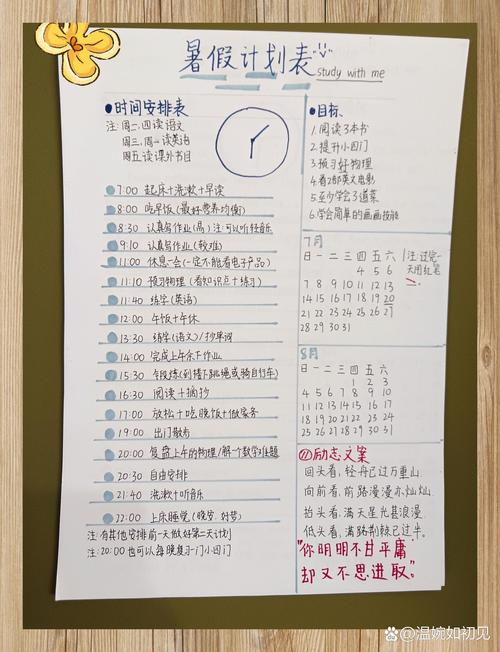 暑假计划表
study with me
时间安排表
注:周一、四读语文
周三、周一读英语
周五读课外书目
7:00 起床+洗漱+早读
8:00 吃早饭(最好营养均衡)
8:30 认真写作业(高)注:可以听轻音乐
9:10 认真写作业(较难)
11:00 休息一会(一定不能看电子产品)
11:10 预习物理(看知识点+练习)
11:40 练字(英语)
12:00 午饭+午休
13:30 练字(语文)/抄单词
14:00 完成上午余下作业
15:30 锻炼(到楼下跳绳或骑自行车)
16:30 阅读+摘抄
17:00 放松+吃晚饭+做家务
19:00 出门散步
20:00 复习上午的物理/解一个数学难题
20:30 自由安排
21:40 洗漱+听音乐
22:00 上床睡觉(晚安,好梦)
注:有其他安排前一天做好第二天计划
注:20:00也可以每晚复习一门小四门
目标、
1.阅读3本书
2.提升小四门
3.预习好物理
4.看2部英文电影
5.至少学会3道菜
6.学会简单的画画技能
7月
日 一 二 三 四 五 六
4 5 6
7 8 9 10 11 12 13
14 15 16 17 18 19 20
21 22 23 24 25 26 27
28 29 30 31
注:过完一
天用红笔
8月
日 一 二 三 四 五 六
1 2 3
4 5 6 7 8 9 10
11 12 13 14 15 16 17
18 19 20 21 22 23 24
25 26 27 28 29 30 31
励志文案
回头看,轻舟已过万重山.
向前看,前路漫漫亦灿灿
抬头看,满天星光甚浪漫.
低头看,满路荆棘已过半.
"你明明不甘平庸
却又不思进取."
@温婉如初见